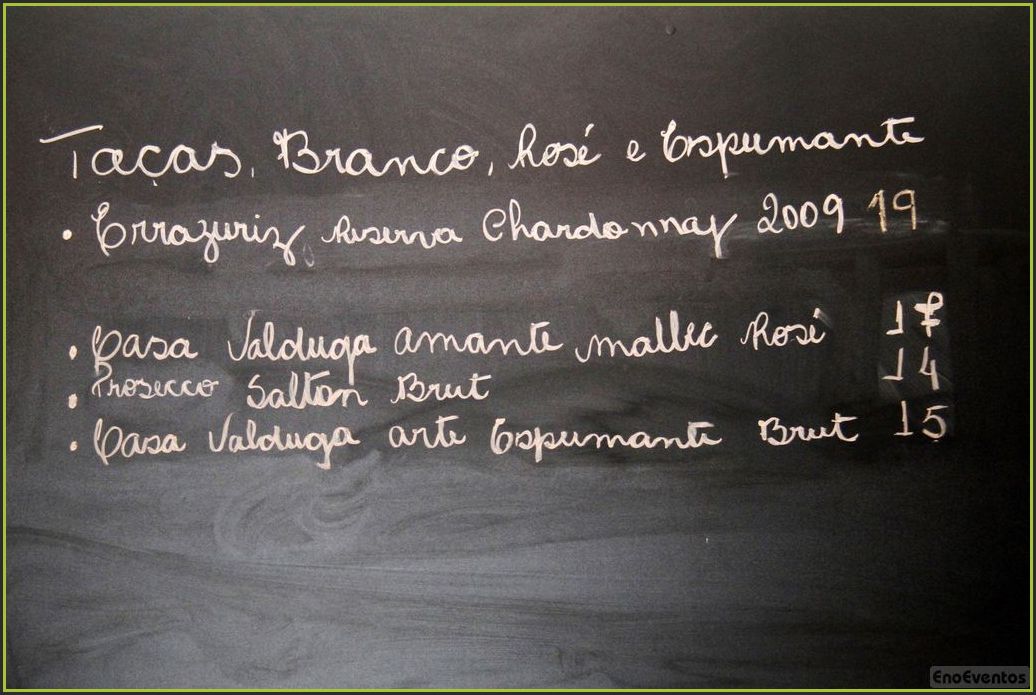 Taças, Branco, Rosé e Espumante
• Errazuriz, Reserva Chardonnay 2009 19
• Casa Valduga amante mallec Rosé 17
• Prosecco Salton Brut 14
• Casa Valduga arte Espumante Brut 15
EnoEventos